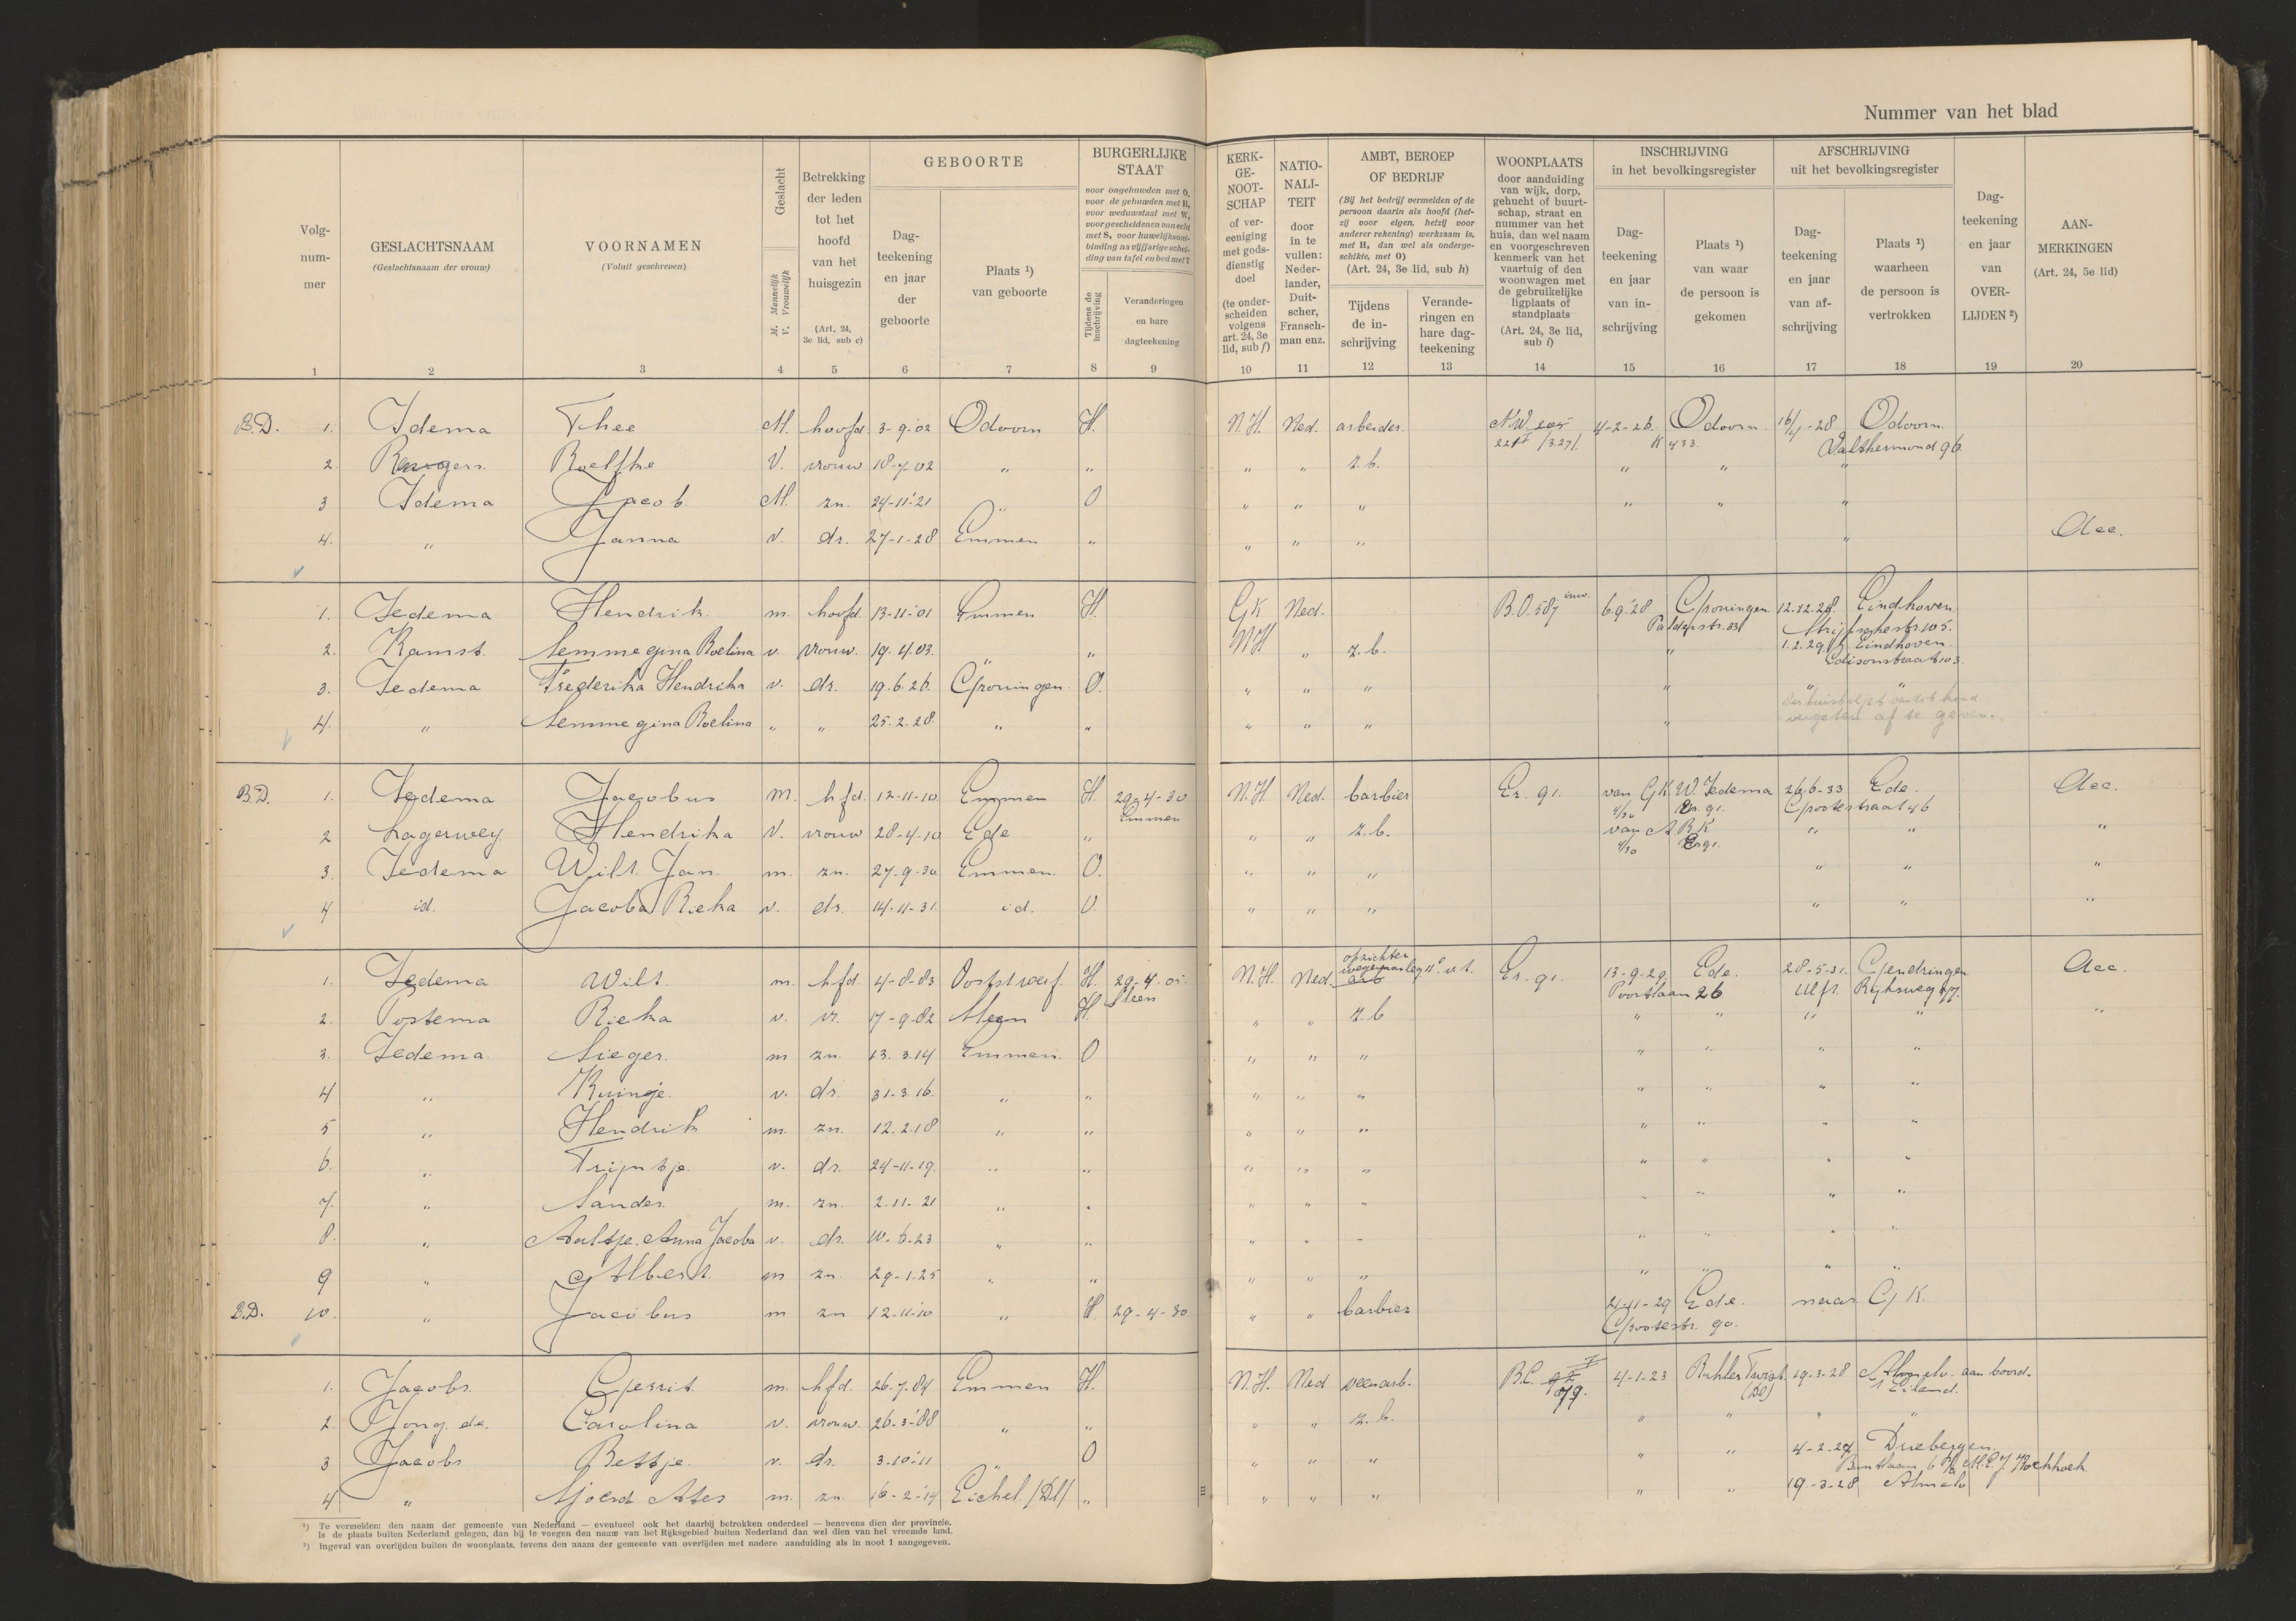 Nummer van het blad
Volgnummer
GESLACHTSNAAM
(Geslachtsnaam der vrouw)
VOORNAMEN
(Voluit geschreven)
Geslacht
M. Mannelijk
V. Vrouwelijk
Betrekking
der leden
tot het
hoofd
van het
huisgezin
(Art. 24,
3e lid, sub c)
GEBOORTE
Dag-
teekening
en jaar
der
geboorte
Plaats ¹)
van geboorte
BURGERLIJKE
STAAT
voor ongehuwden met O,
voor de gehuwden met H,
voor weduwstaat met W,
voor gescheidenen van echt
met S, voor huwelijksont-
binding na vijfjarige schei-
ding van tafel en bed met T
Tijdens de
inschrijving
Veranderingen
en hare
dagteekening
KERK-
GE-
NOOT-
SCHAP
of ver-
eeniging
met gods-
dienstig
doel
(te onder-
scheiden
volgens
art. 24, 3e
lid, sub f)
NATIO-
NALI-
TEIT
door
in te
vullen:
Neder-
lander,
Duit-
scher,
Fransch-
man enz.
AMBT, BEROEP
OF BEDRIJF
(Bij het bedrijf vermelden of de
persoon daarin als hoofd (het-
zij voor eigen, hetzij voor
anderer rekening) werkzaam is,
met H, dan wel als onderge-
schikte, met O)
(Art. 24, 3e lid, sub h)
Tijdens
de in-
schrijving
Verande-
ringen en
hare dag-
teekening
WOONPLAATS
door aanduiding
van wijk, dorp,
gehucht of buurt-
schap, straat en
nummer van het
huis, dan wel naam
en voorgeschreven
kenmerk van het
vaartuig of den
woonwagen met
de gebruikelijke
ligplaats of
standplaats
(Art. 24, 3e lid,
sub i)
INSCHRIJVING
in het bevolkingsregister
Dag-
teekening
en jaar
van in-
schrijving
Plaats ¹)
van waar
de persoon is
gekomen
AFSCHRIJVING
uit het bevolkingsregister
Dag-
teekening
en jaar
van af-
schrijving
Plaats ¹)
waarheen
de persoon is
vertrokken
Dag-
teekening
en jaar
van
OVER-
LIJDEN ²)
AAN-
MERKINGEN
(Art. 24, 5e lid)
1 2 3 4 5 6 7 8 9 10 11 12 13 14 15 16 17 18 19 20
B.D. 1. Idema Thee M. hoofd 3-9-'02 Odoorn H. N.H. Ned. arbeider. N.W. 4-2-26. Odoorn. 16/4-28 Odoorn
K 433. Valthermond 96
2 Roelfke V. vrouw 18-7-02 " " " " z.b. " " "
3 Idema Jacob. M. zn. 24-11-'21 " O " " " " " "
4. " Janna v. dr. 27-1-28 Emmen " " " " " Acc.
1. Iedema Hendrik m. hoofd 13-11-'01 Emmen H. GK Ned. B.O. 587 inw. 6.9.'28 Groningen 12.12.28. Eindhoven.
2. Kamst. Lemmegina Roelina v. vrouw. 19.4.03. " " NH " z.b. " 1.2.29. Eindhoven.
Edisonstraat 103.
3. Iedema Frederika Hendrika v. dr. 19.6.26. Groningen. O. " " " " " "
vergeten af te geven.
4. " Lemmegina Roelina " " 25.2.28. " " " " " "
B.D. 1. Iedema Jacobus m. hfd. 12-11-10 Emmen H. 29-4-30 N.H. Ned. barbier Er. 91. van GK W. Iedema 26-6-33 Ede. Acc.
Emmen 4/30 Er. 91. Grotestraat 46
2 Lagerwey. Hendrika V. vrouw 28-4-10 Ede " " " z.b. van A.B.K. " " "
4/30 Er 91.
3. Iedema Wilt Jan. m. zn. 27-9-30 Emmen. O. " " " " " "
4 id. Jacoba Rieka v. dr. 14-11-31. id. O. " " " " " "
1. Iedema Wilt. m. hfd. 4-8-83 Ooststwerf. H. 29-4-05 N.H. Ned. opzichter Er. 91. 13-9-29 Ede. 28-5-31. Gendringen Acc.
Sleen Poortlaan 26 Ulft. Rijksweg
2. Postema Rieka v. vr. 17-9-82 Sleen H. " " z.b " " " " "
3. Iedema. Sieger. m zn. 13.3.14 Emmen. O " " " " " " "
4 " Ruingje. v. dr. 31.3.16. " " " " " " " " "
5 " Hendrik m. zn. 12.2.18 " " " " " " " " "
6. " Trijntje. v. dr. 24-11-19. " " " " " " " " "
7. " Sander. m. zn. 2.11.21 " " " " " " " " "
8. " Aaltje Anna Jacoba v. dr. 10.6.23 " " " " " " " " "
9 " Albert. m zn. 29-1-25 " " " " " " " " "
B.D. 10. " Jacobus m zn 12.11.10 " H. 29-4-30 " " barbier 21-11-29 Ede. naar GK.
Grootestr. 90.
1. Jacobs Gerrit. m. hfd. 26.7.84 Emmen H. N.H. Ned veenarb. B.C. 79. 4-1-23 Ruhler Twist 19-3-28 Almelo. aan boord.
2. Jong, de. Carolina v. vrouw. 26-3-'88 " " " " z.b. " " " "
3 Jacobs Bettje. v. dr. 3.10.'11 " O " " " " " 4-2-27 Driebergen.
4 " Sjoerd Ates m. zn. 16-2-'14 Eichel (Dl) " " " " " " 19-3-28 Almelo
¹) Te vermelden: den naam der gemeente van Nederland — eventueel ook het daarbij betrokken onderdeel — benevens dien der provincie.
Is de plaats buiten Nederland gelegen, dan bij te voegen den naam van het Rijksgebied buiten Nederland dan wel dien van het vreemde land.
²) Ingeval van overlijden buiten de woonplaats, tevens den naam der gemeente van overlijden met nadere aanduiding als in noot 1 aangegeven.